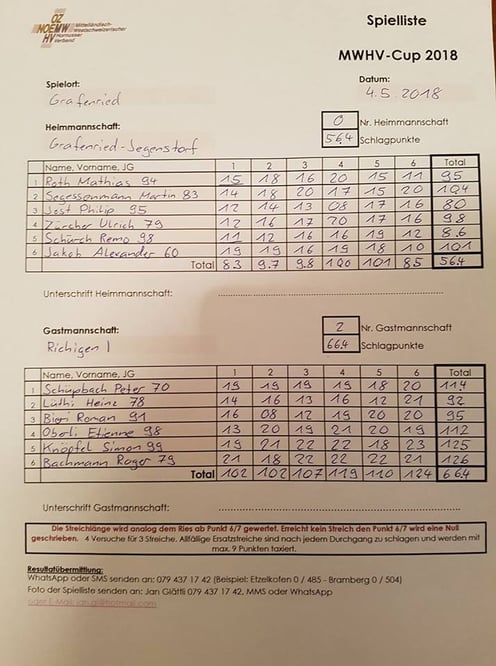 OZ
NOEMW
HV
Mittelländisch-
Westschweizerischer
Hornusser
Verband
Spielliste
MWHV-Cup 2018
Spielort:
Datum:
Grafenried
4.5.2018
Heimmannschaft:
0 Nr. Heimmannschaft
Grafenried-Jegenstorf
564 Schlagpunkte
Name, Vorname, JG 1 2 3 4 5 6 Total
1 Roth Mathias 94 15 18 16 20 15 11 95
2 Segessenmann Martin 83 14 18 20 17 15 20 104
3 Jost Philip 95 12 14 13 08 17 16 80
4 Zürcher Ulrich 79 12 16 17 20 17 16 98
5 Schürch Remo 98 11 12 16 16 19 12 86
6 Jakob Alexander 60 19 19 16 19 18 10 101
Total 83 97 98 100 101 85 564
Unterschrift Heimmannschaft:
Gastmannschaft:
2 Nr. Gastmannschaft
Richigen 1
664 Schlagpunkte
Name, Vorname, JG 1 2 3 4 5 6 Total
1 Schüpbach Peter 70 19 19 19 19 18 20 114
2 Lüthi Heinz 78 14 16 13 16 12 21 92
3 Bieri Roman 91 16 08 12 19 20 20 95
4 Oberli Etienne 98 13 20 19 21 20 19 112
5 Knöpfel Simon 99 19 21 22 22 18 23 125
6 Bachmann Roger 79 21 18 22 22 22 21 126
Total 102 102 107 119 110 124 664
Unterschrift Gastmannschaft:
Die Streichlänge wird analog dem Ries ab Punkt 6/7 gewertet. Erreicht kein Streich den Punkt 6/7 wird eine Null
geschrieben. 4 Versuche für 3 Streiche. Allfällige Ersatzstreiche sind nach jedem Durchgang zu schlagen und werden mit
max. 9 Punkten taxiert.
Resultatübermittlung:
WhatsApp oder SMS senden an: 079 437 17 42 (Beispiel: Etzelkofen 0 / 485 - Bramberg 0 / 504)
Foto der Spielliste senden an: Jan Glättli 079 437 17 42, MMS oder WhatsApp
oder E-Mail: jan.gl@hotmail.com